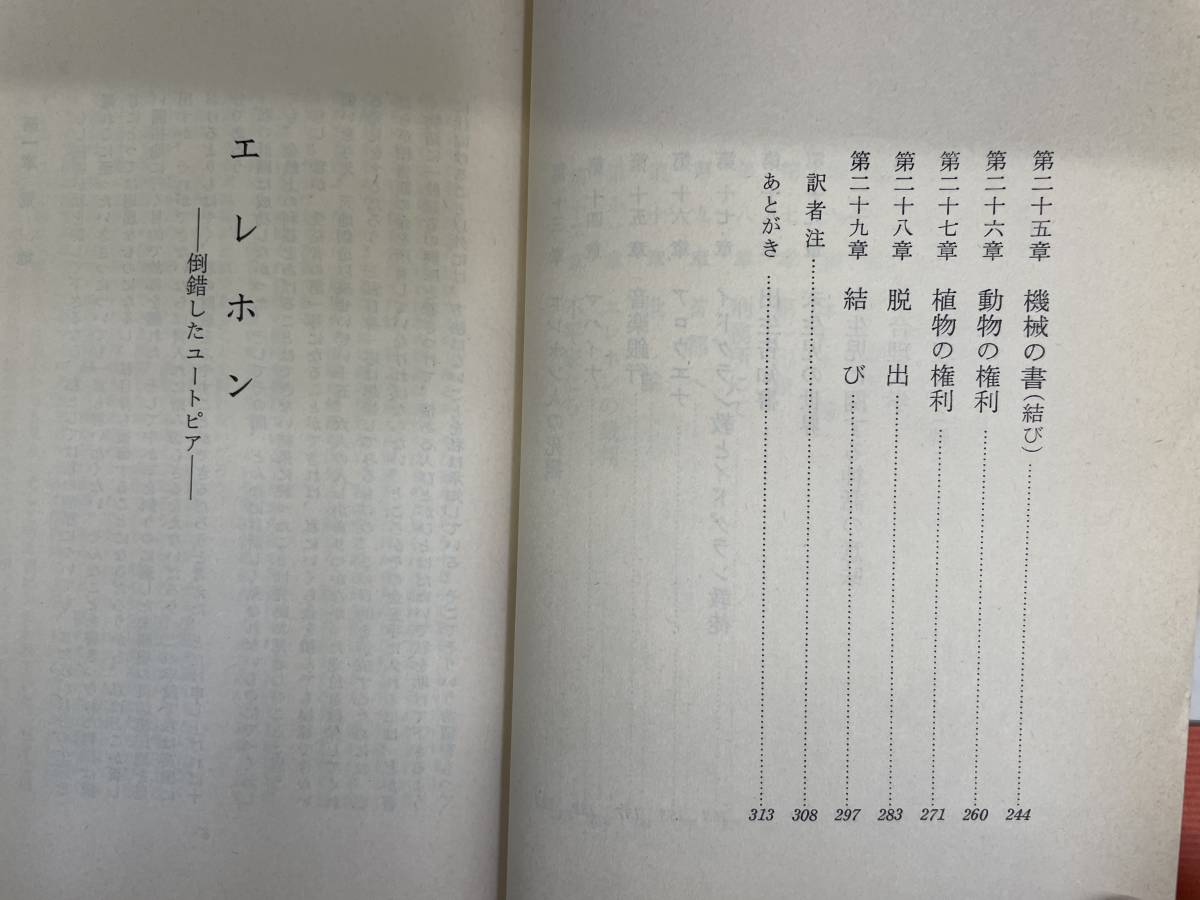 第二十五章 機械の書(結び)……244
第二十六章 動物の権利……260
第二十七章 植物の権利……271
第二十八章 脱出……283
第二十九章 結び……297
訳者注……308
あとがき……313
エレホン
――倒錯したユートピア――